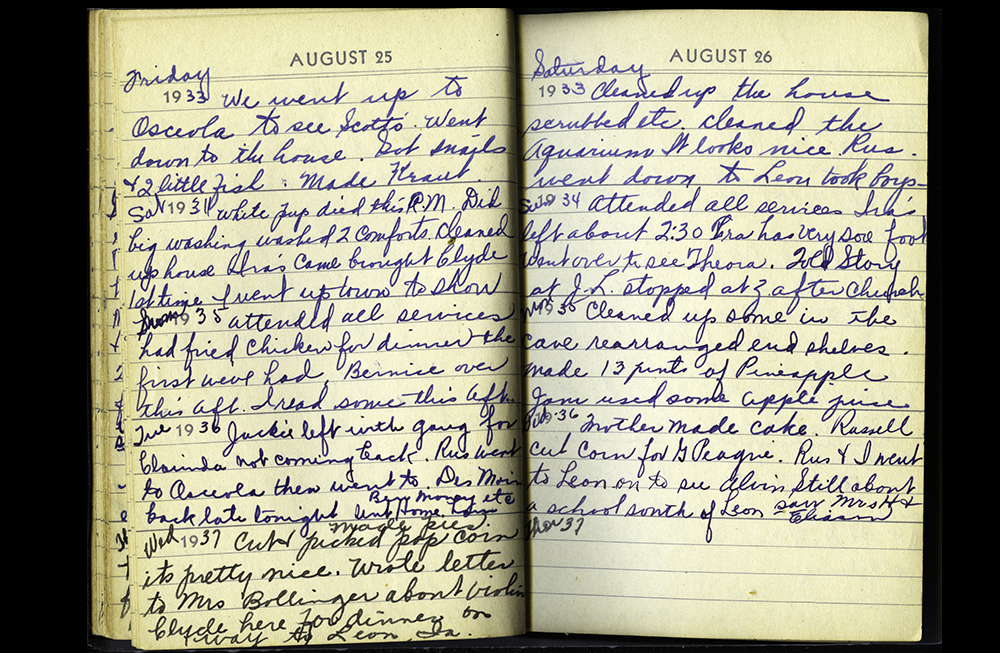 AUGUST 25
Friday
1933 We went up to
Osceola to see Scotts. Went
down to the house. Got snails
& 2 little fish. Made Kraut
Sat 1934 White pup died this P.M. Did
big washing washed 2 comforts. Cleaned
up house Ira's came brought Clyde
1st time I went up town to show
Sun 1935 attended all services
had fried chicken for dinner the
first weve had. Bernice over
this aft. I read some this aft.
Tue 1936 Jackie left with gang for
Clarinda not coming back. Rus went
to Osceola then went to Des Moin
back late tonight Sent Home Loan
Ben Money etc
made pies.
Wed 1937 Cut & picked pop corn
its pretty nice. Wrote letter
to Mrs Bollinger about violin
Clyde here for dinner on
way to Leon, Ia.
AUGUST 26
Saturday
1933 Cleaned up the house
scrubbed etc. cleaned the
Aquarium It looks nice Rus.
went down to Leon took boys
Sun 1934 Attended all services Ira's
left about 2:30 Ira has very sore foot
Went over to see Theora. Told Story
at J.L. stopped at Z after Church
Mon 1935 Cleaned up some in the
cave rearranged end shelves.
Made 13 pints of Pineapple
Jam used some apple juice
1936 Mother made cake. Russell
cut corn for G Peague. Rus & I went
to Leon on to see Alvin Still about
a school south of Leon saw Mrs H &
Thur 37